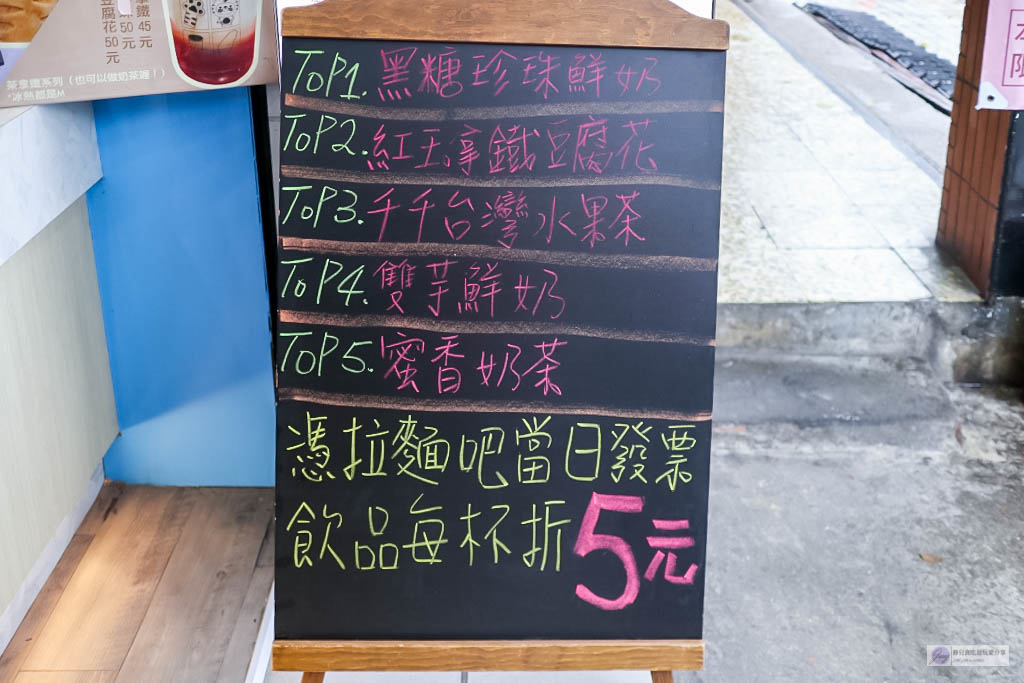 豆腐花50元
50元
拿鐵45元
茶拿鐵系列（也可以做奶茶喔！）
*冰熱都是M
TOP1.黑糖珍珠鮮奶
TOP2.紅玉拿鐵豆腐花
TOP3.千千台灣水果茶
TOP4.雙芋鮮奶
TOP5.蜜香奶茶
憑拉麵吧當日發票
飲品每杯折5元